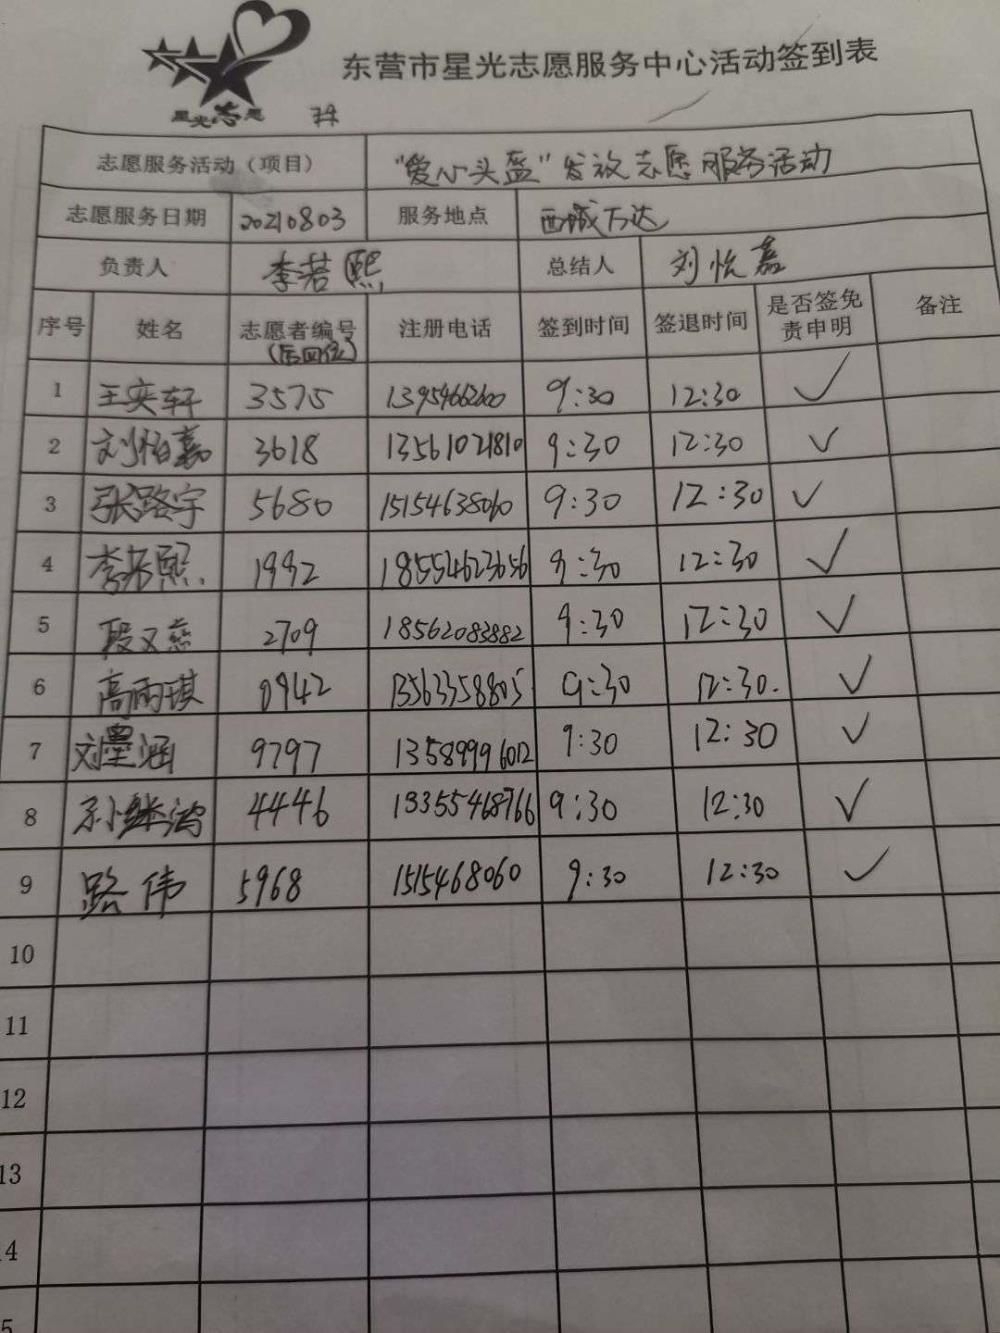 星光志愿
东营市星光志愿服务中心活动签到表
志愿服务活动（项目） "爱心头盔"发放志愿服务活动
志愿服务日期 20210803 服务地点 西城万达
负责人 李若熙 总结人 刘怡嘉
序号 姓名 志愿者编号（后四位） 注册电话 签到时间 签退时间 是否签免责申明 备注
1 王奕轩 3575 13954662600 9:30 12:30 ✓
2 刘怡嘉 3618 13561021810 9:30 12:30 ✓
3 张路宇 5680 15154638060 9:30 12:30 ✓
4 李若熙 1992 18554623656 9:30 12:30 ✓
5 段又慈 2709 18562083882 9:30 12:30 ✓
6 高雨琪 0942 13563358805 9:30 12:30. ✓
7 刘墨涵 9797 13589996012 9:30 12:30 ✓
8 4446 13355468766 9:30 12:30 ✓
9 路伟 5968 1515468060 9:30 12:30 ✓
10
11
12
13
4
5